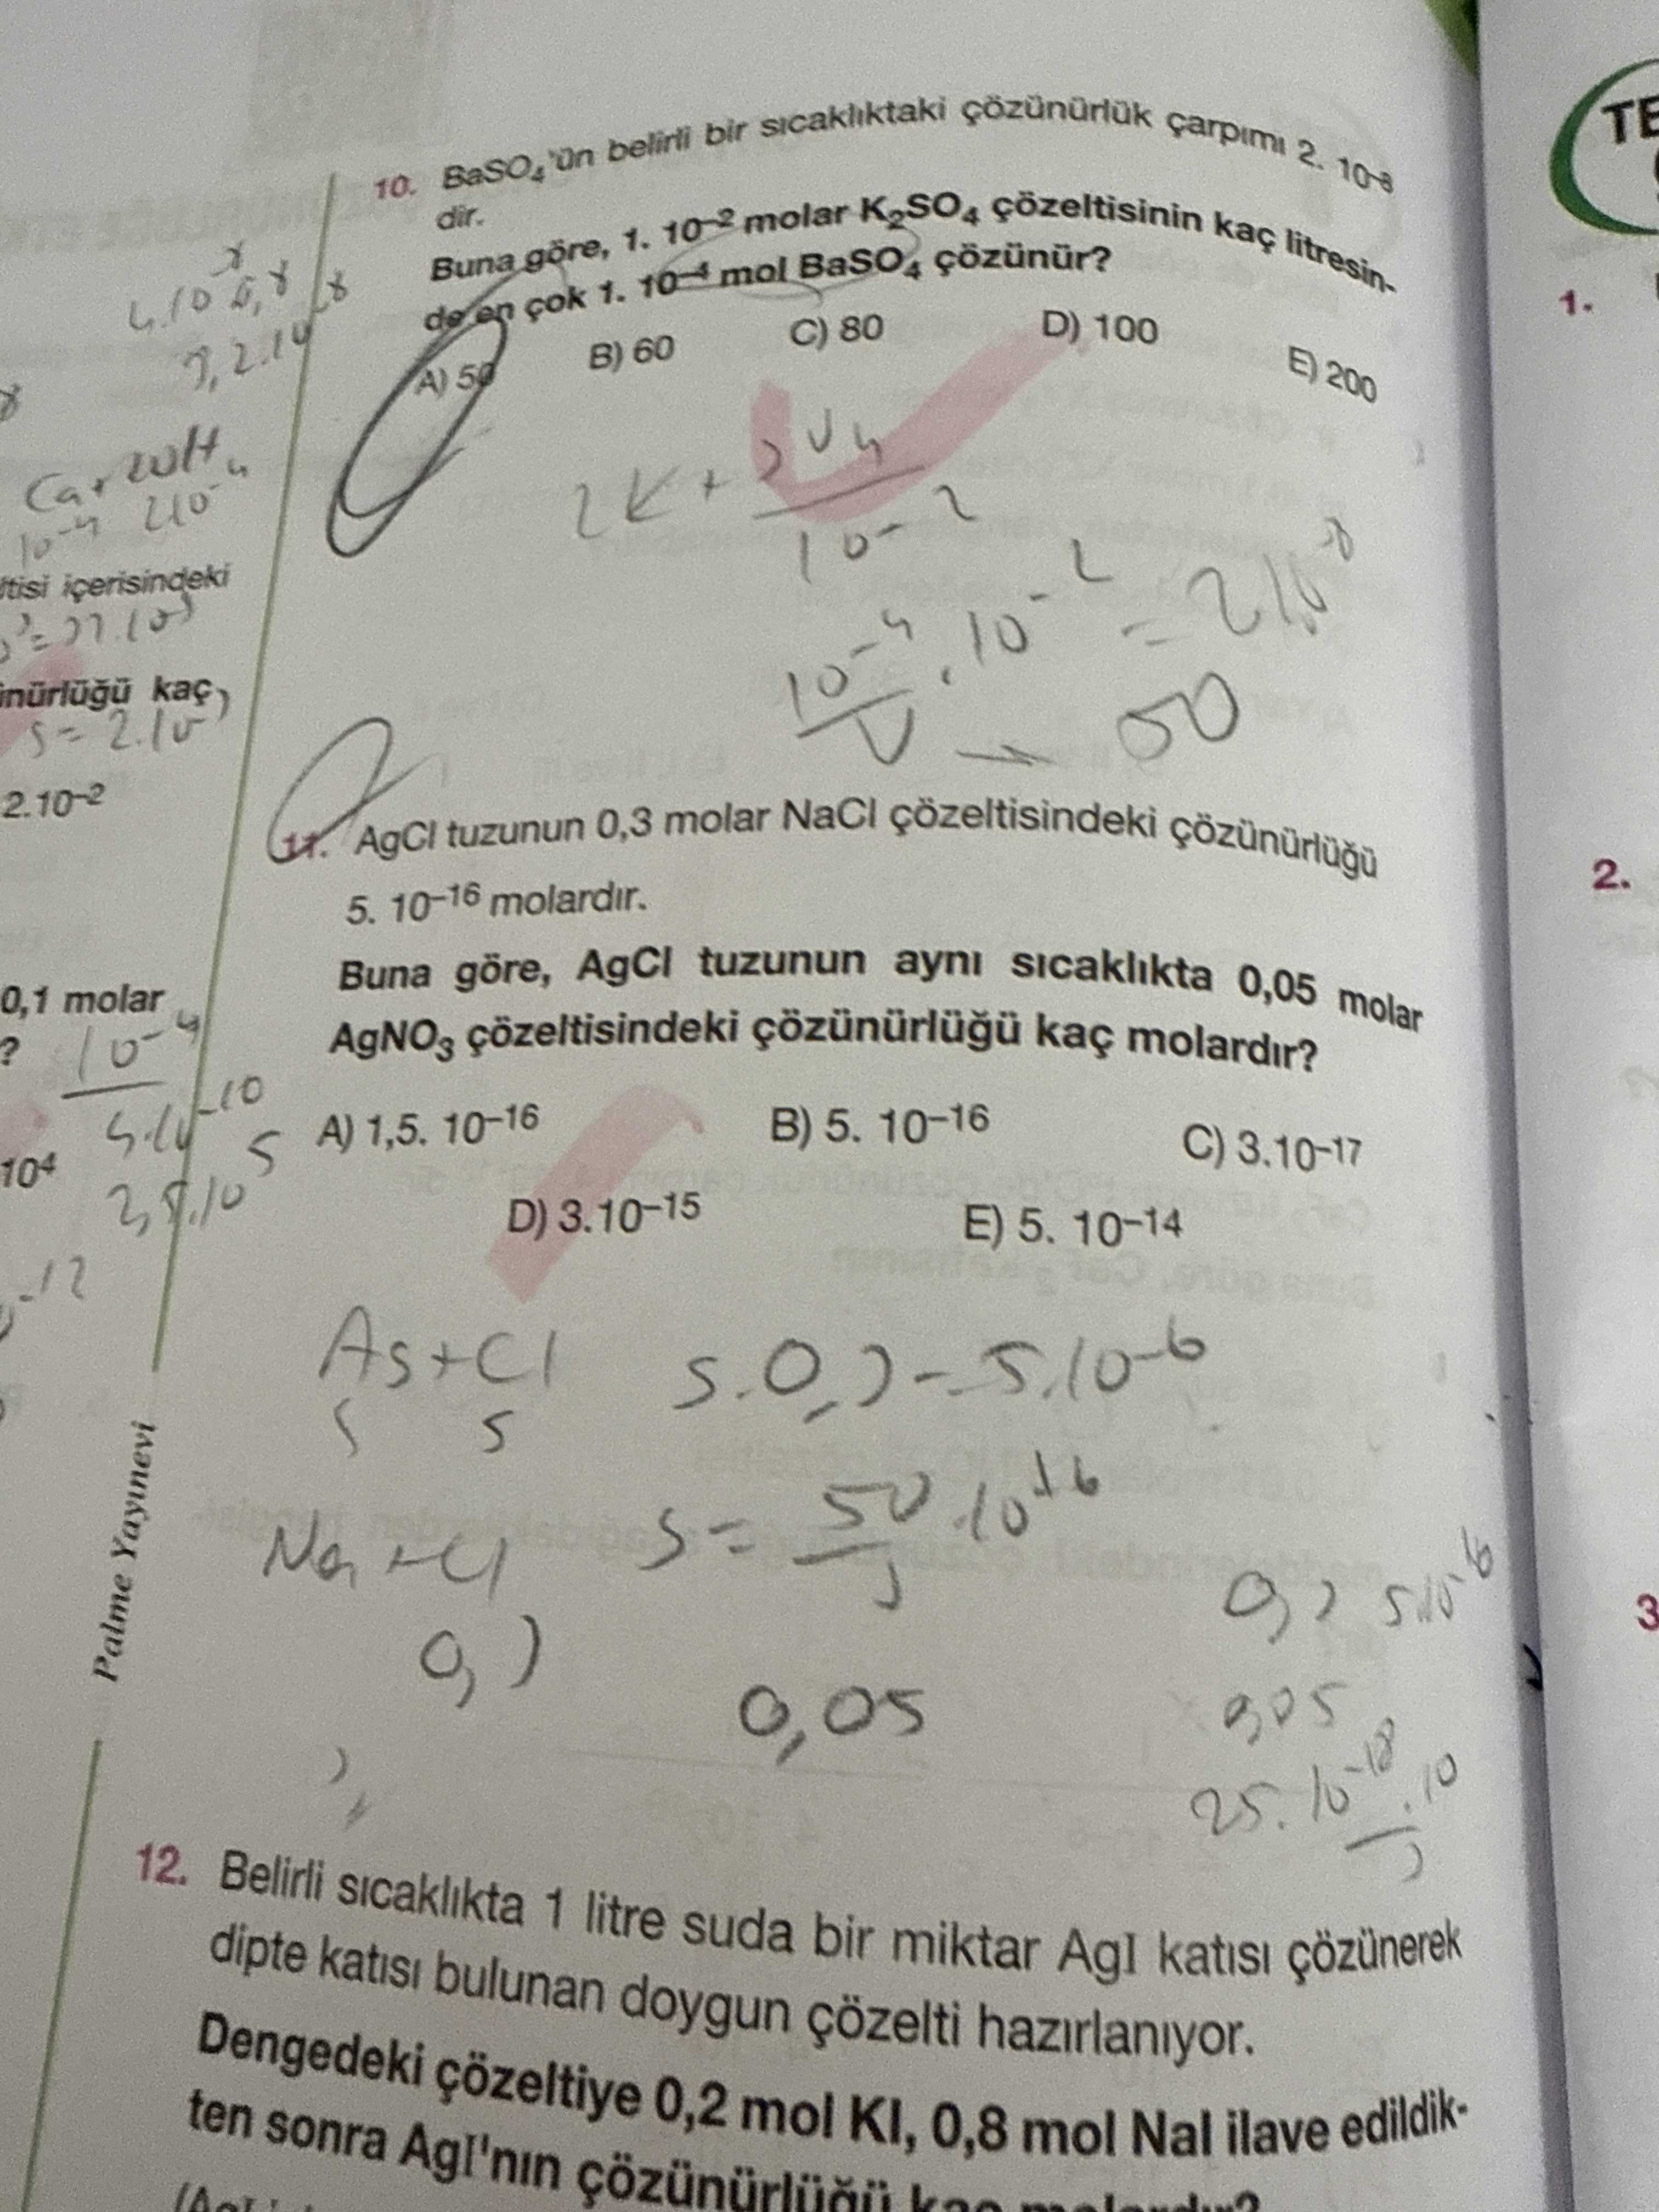 10. BaSO₄'ün belirli bir sıcaklıktaki çözünürlük çarpımı 2. 10⁻⁸
dir.
Buna göre, 1. 10⁻² molar K₂SO₄ çözeltisinin kaç litresin-
de en çok 1. 10⁻⁴ mol BaSO₄ çözünür?
A) 50 B) 60 C) 80 D) 100 E) 200
10⁻²
10⁻⁴ . 10⁻² = 2 10⁻⁸
V 50
11. AgCl tuzunun 0,3 molar NaCl çözeltisindeki çözünürlüğü
5. 10⁻¹⁶ molardır.
Buna göre, AgCl tuzunun aynı sıcaklıkta 0,05 molar
AgNO₃ çözeltisindeki çözünürlüğü kaç molardır?
A) 1,5. 10⁻¹⁶ B) 5. 10⁻¹⁶ C) 3.10⁻¹⁷
D) 3.10⁻¹⁵ E) 5. 10⁻¹⁴
Ag+Cl s.0,3 = 5.10⁻⁶
s s
Na+Cl s = 50 .10
0,3
0,05
0,05
25.10⁻¹⁸ .10
3
12. Belirli sıcaklıkta 1 litre suda bir miktar AgI katısı çözünerek
dipte katısı bulunan doygun çözelti hazırlanıyor.
Dengedeki çözeltiye 0,2 mol KI, 0,8 mol NaI ilave edildik-
ten sonra AgI'nın çözünürlüğü kaç molardır?
ltisi içerisindeki
ünürlüğü kaç
s = 2.10
2.10⁻²
0,1 molar
?
10⁻⁴
10⁴
Palme Yayınevi
TE
1.
2.
3